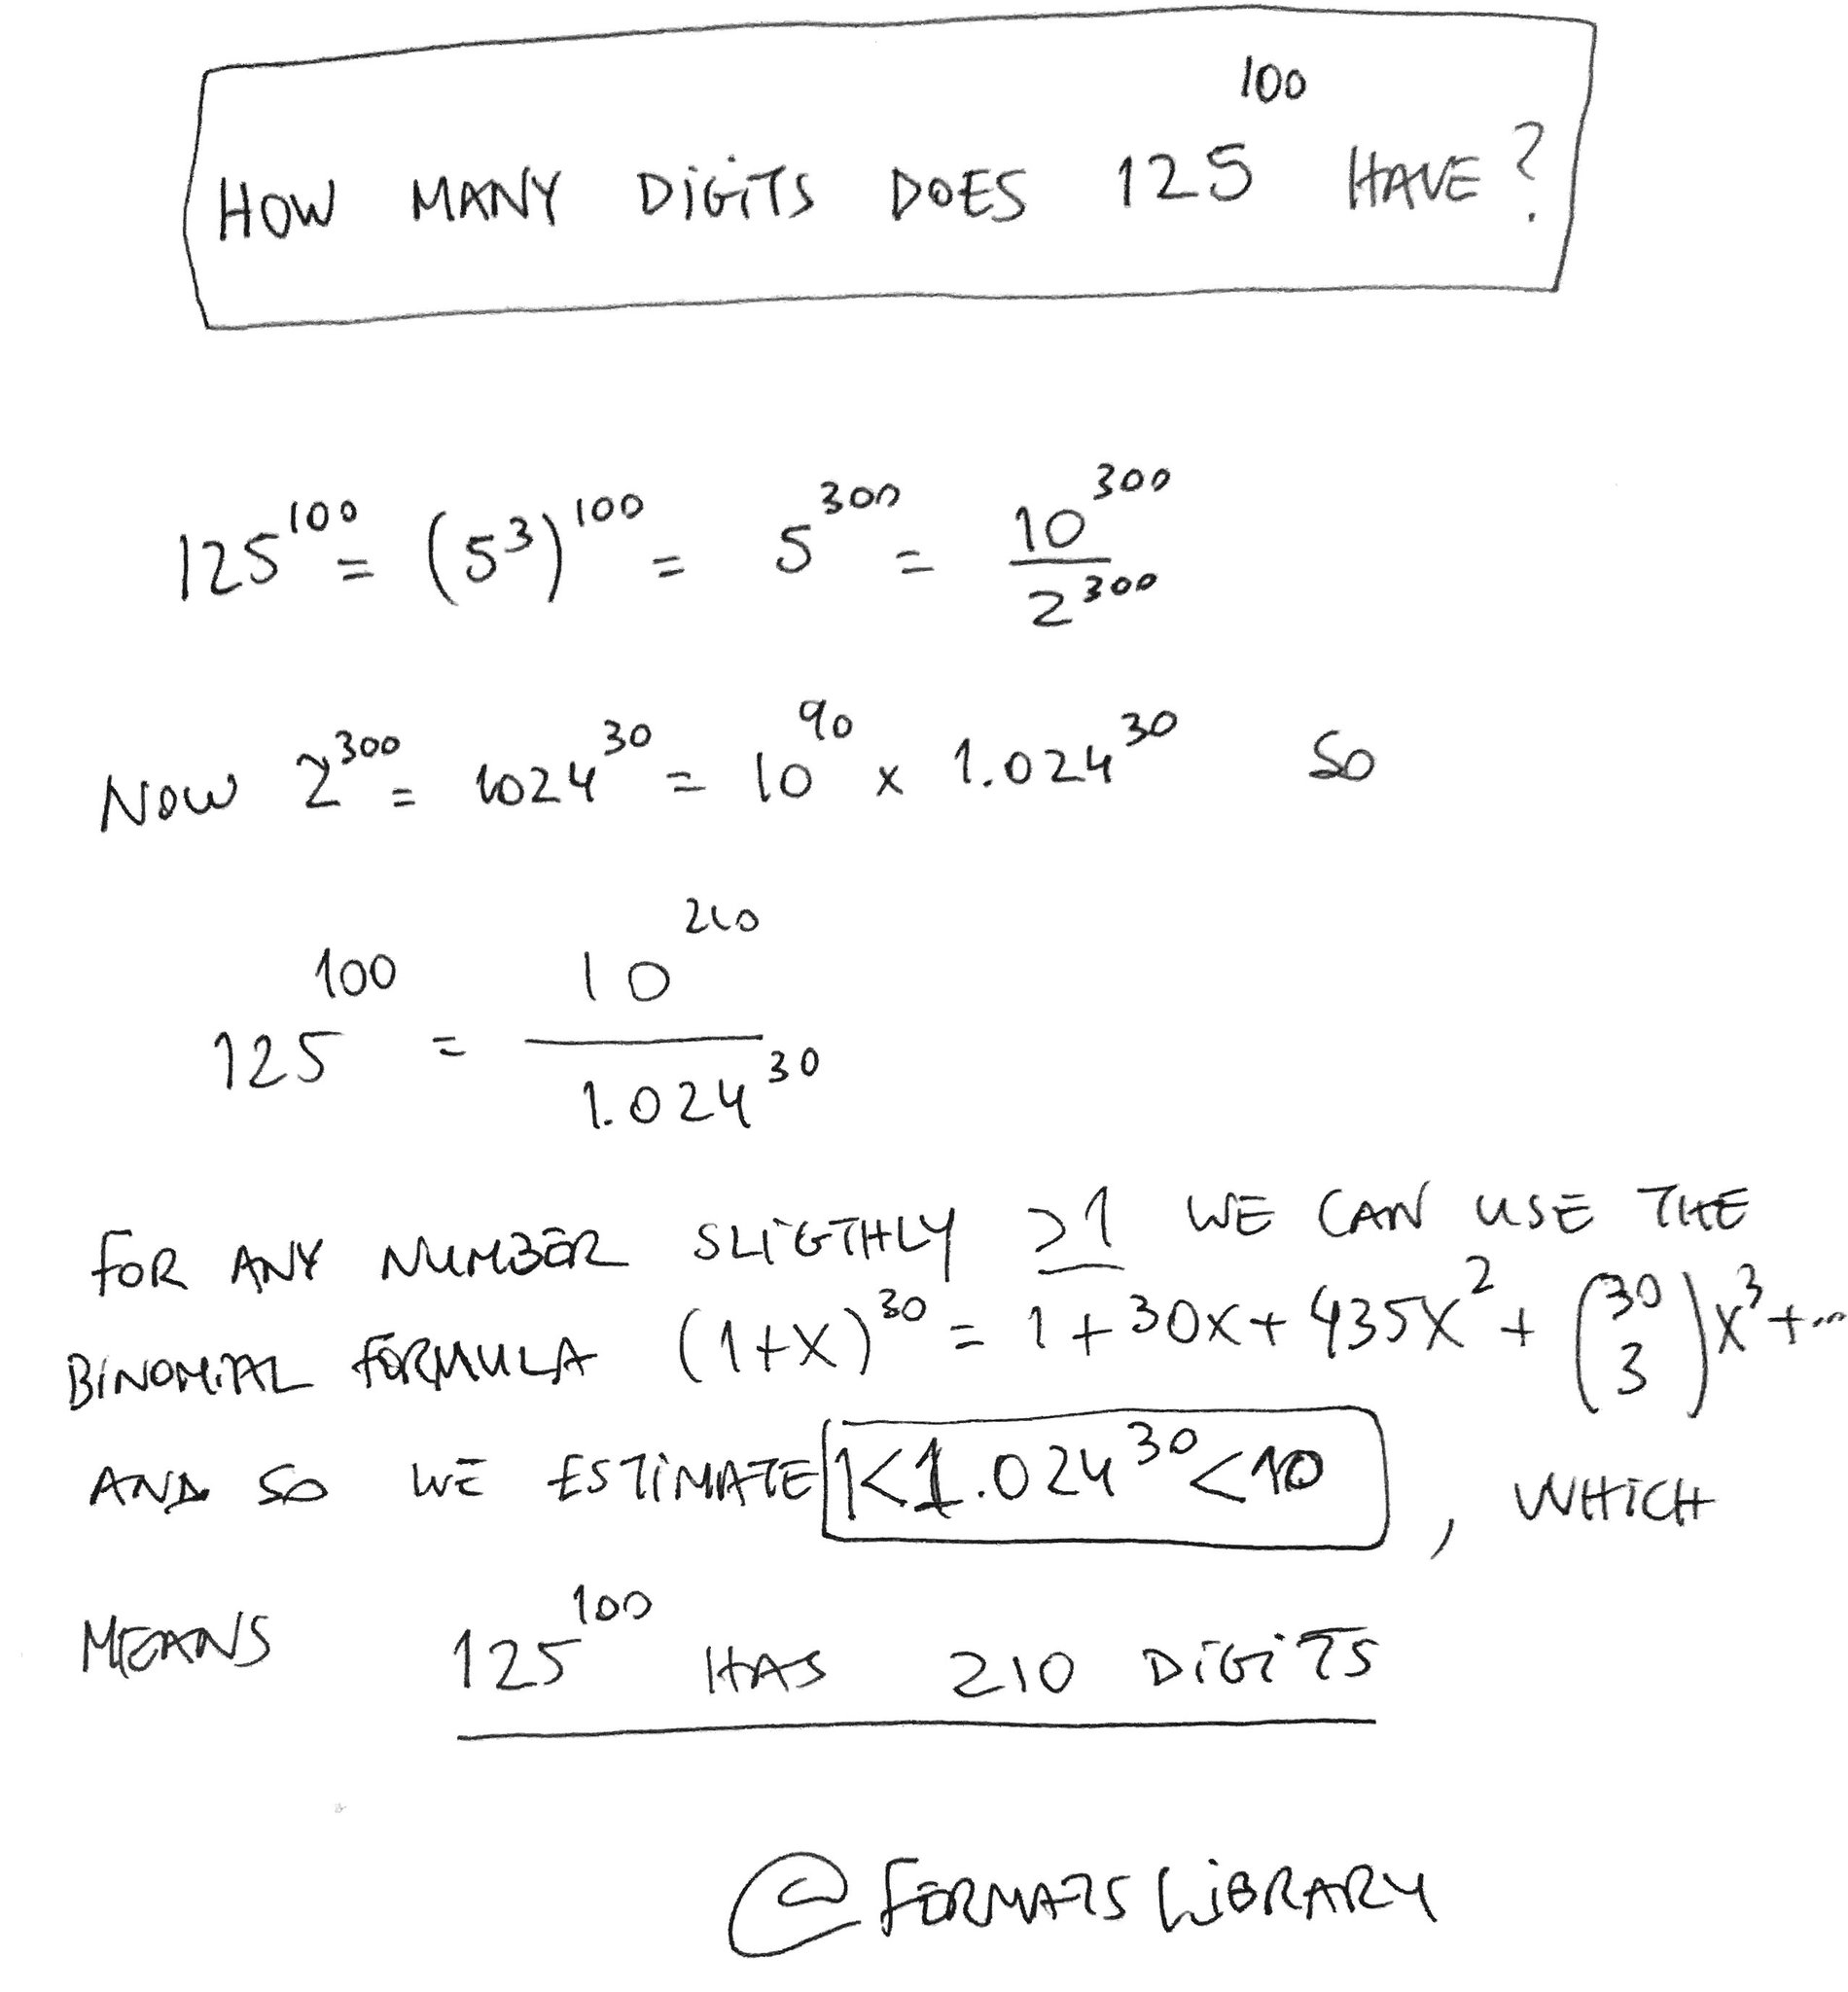 HOW MANY DIGITS DOES 125^100 HAVE?
125^100 = (5^3)^100 = 5^300 = 10^300 / 2^300
NOW 2^300 = 1024^30 = 10^90 x 1.024^30 SO
125^100 = 10^210 / 1.024^30
FOR ANY NUMBER SLIGTHLY ≥1 WE CAN USE THE
BINOMIAL FORMULA (1+X)^30 = 1 + 30X + 435X^2 + (30 3) X^3 + ...
AND SO WE ESTIMATE 1<1.024^30<10, WHICH
MEANS 125^100 HAS 210 DIGITS
@FERMATSLIBRARY